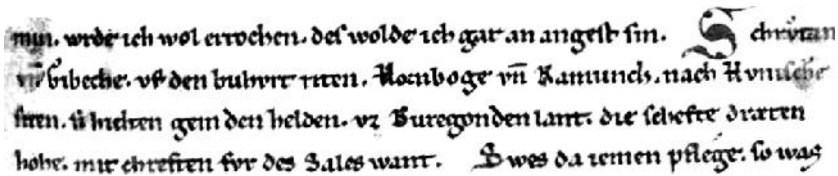 mvt. wrde ich wol errochen. des wolde ich gar an angest sin. Schrvtan
vn̄ Gibeche. vf den buhvrt riten. Hornboge vn̄ Ramunch. nach Hvnische
siten. si hielten gein den helden. vz Buregonden lant. die schefte dræten
hohe. mit chreften fvr des Sales want. Swes da iemen pflege. so was